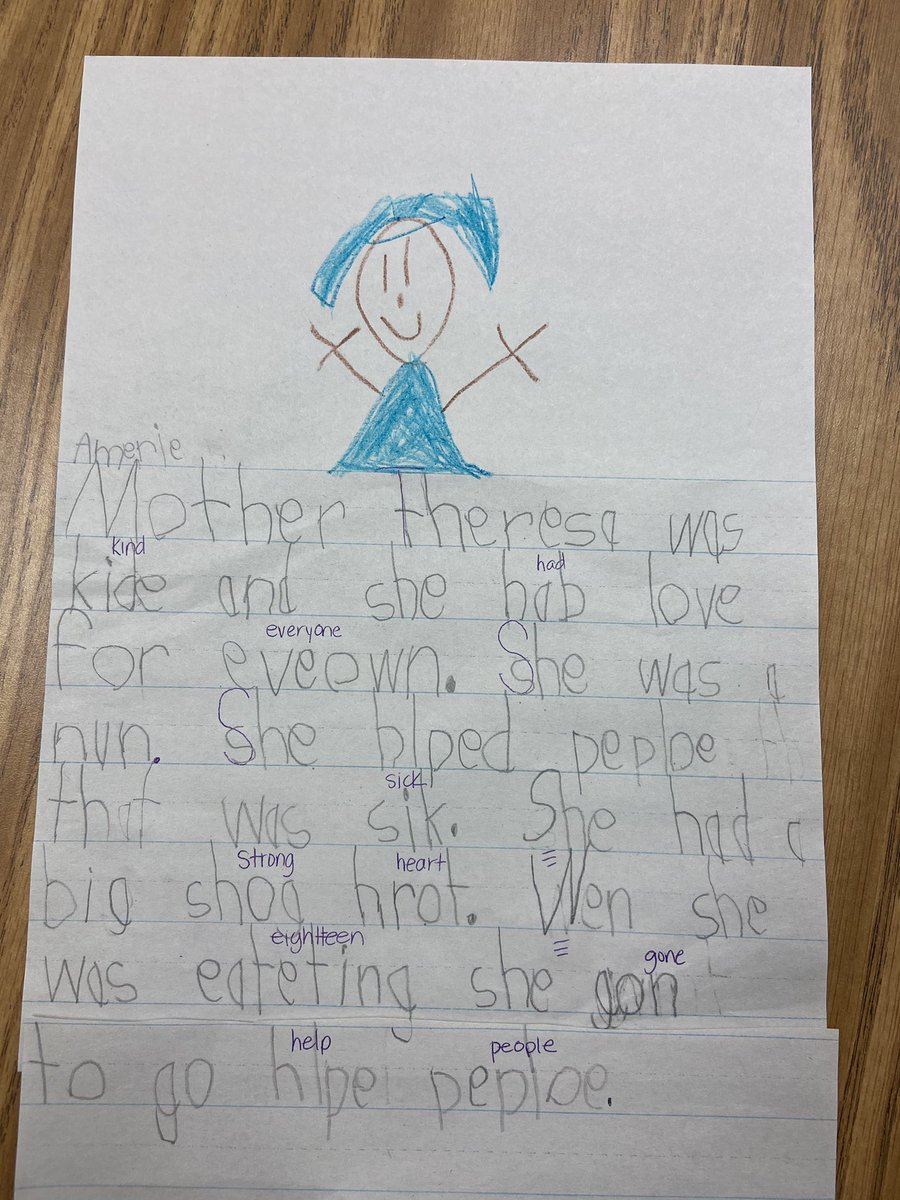 Amerie
Mother theresa was
kind
had
kide and she hab love
everyone
for eveown. She was a
nun. She hlped peploe
sick
that was sik. She had a
strong heart
big shog hrot. Wen she
eightteen
gone
was eateting she gon
help people
to go hlpe peploe.